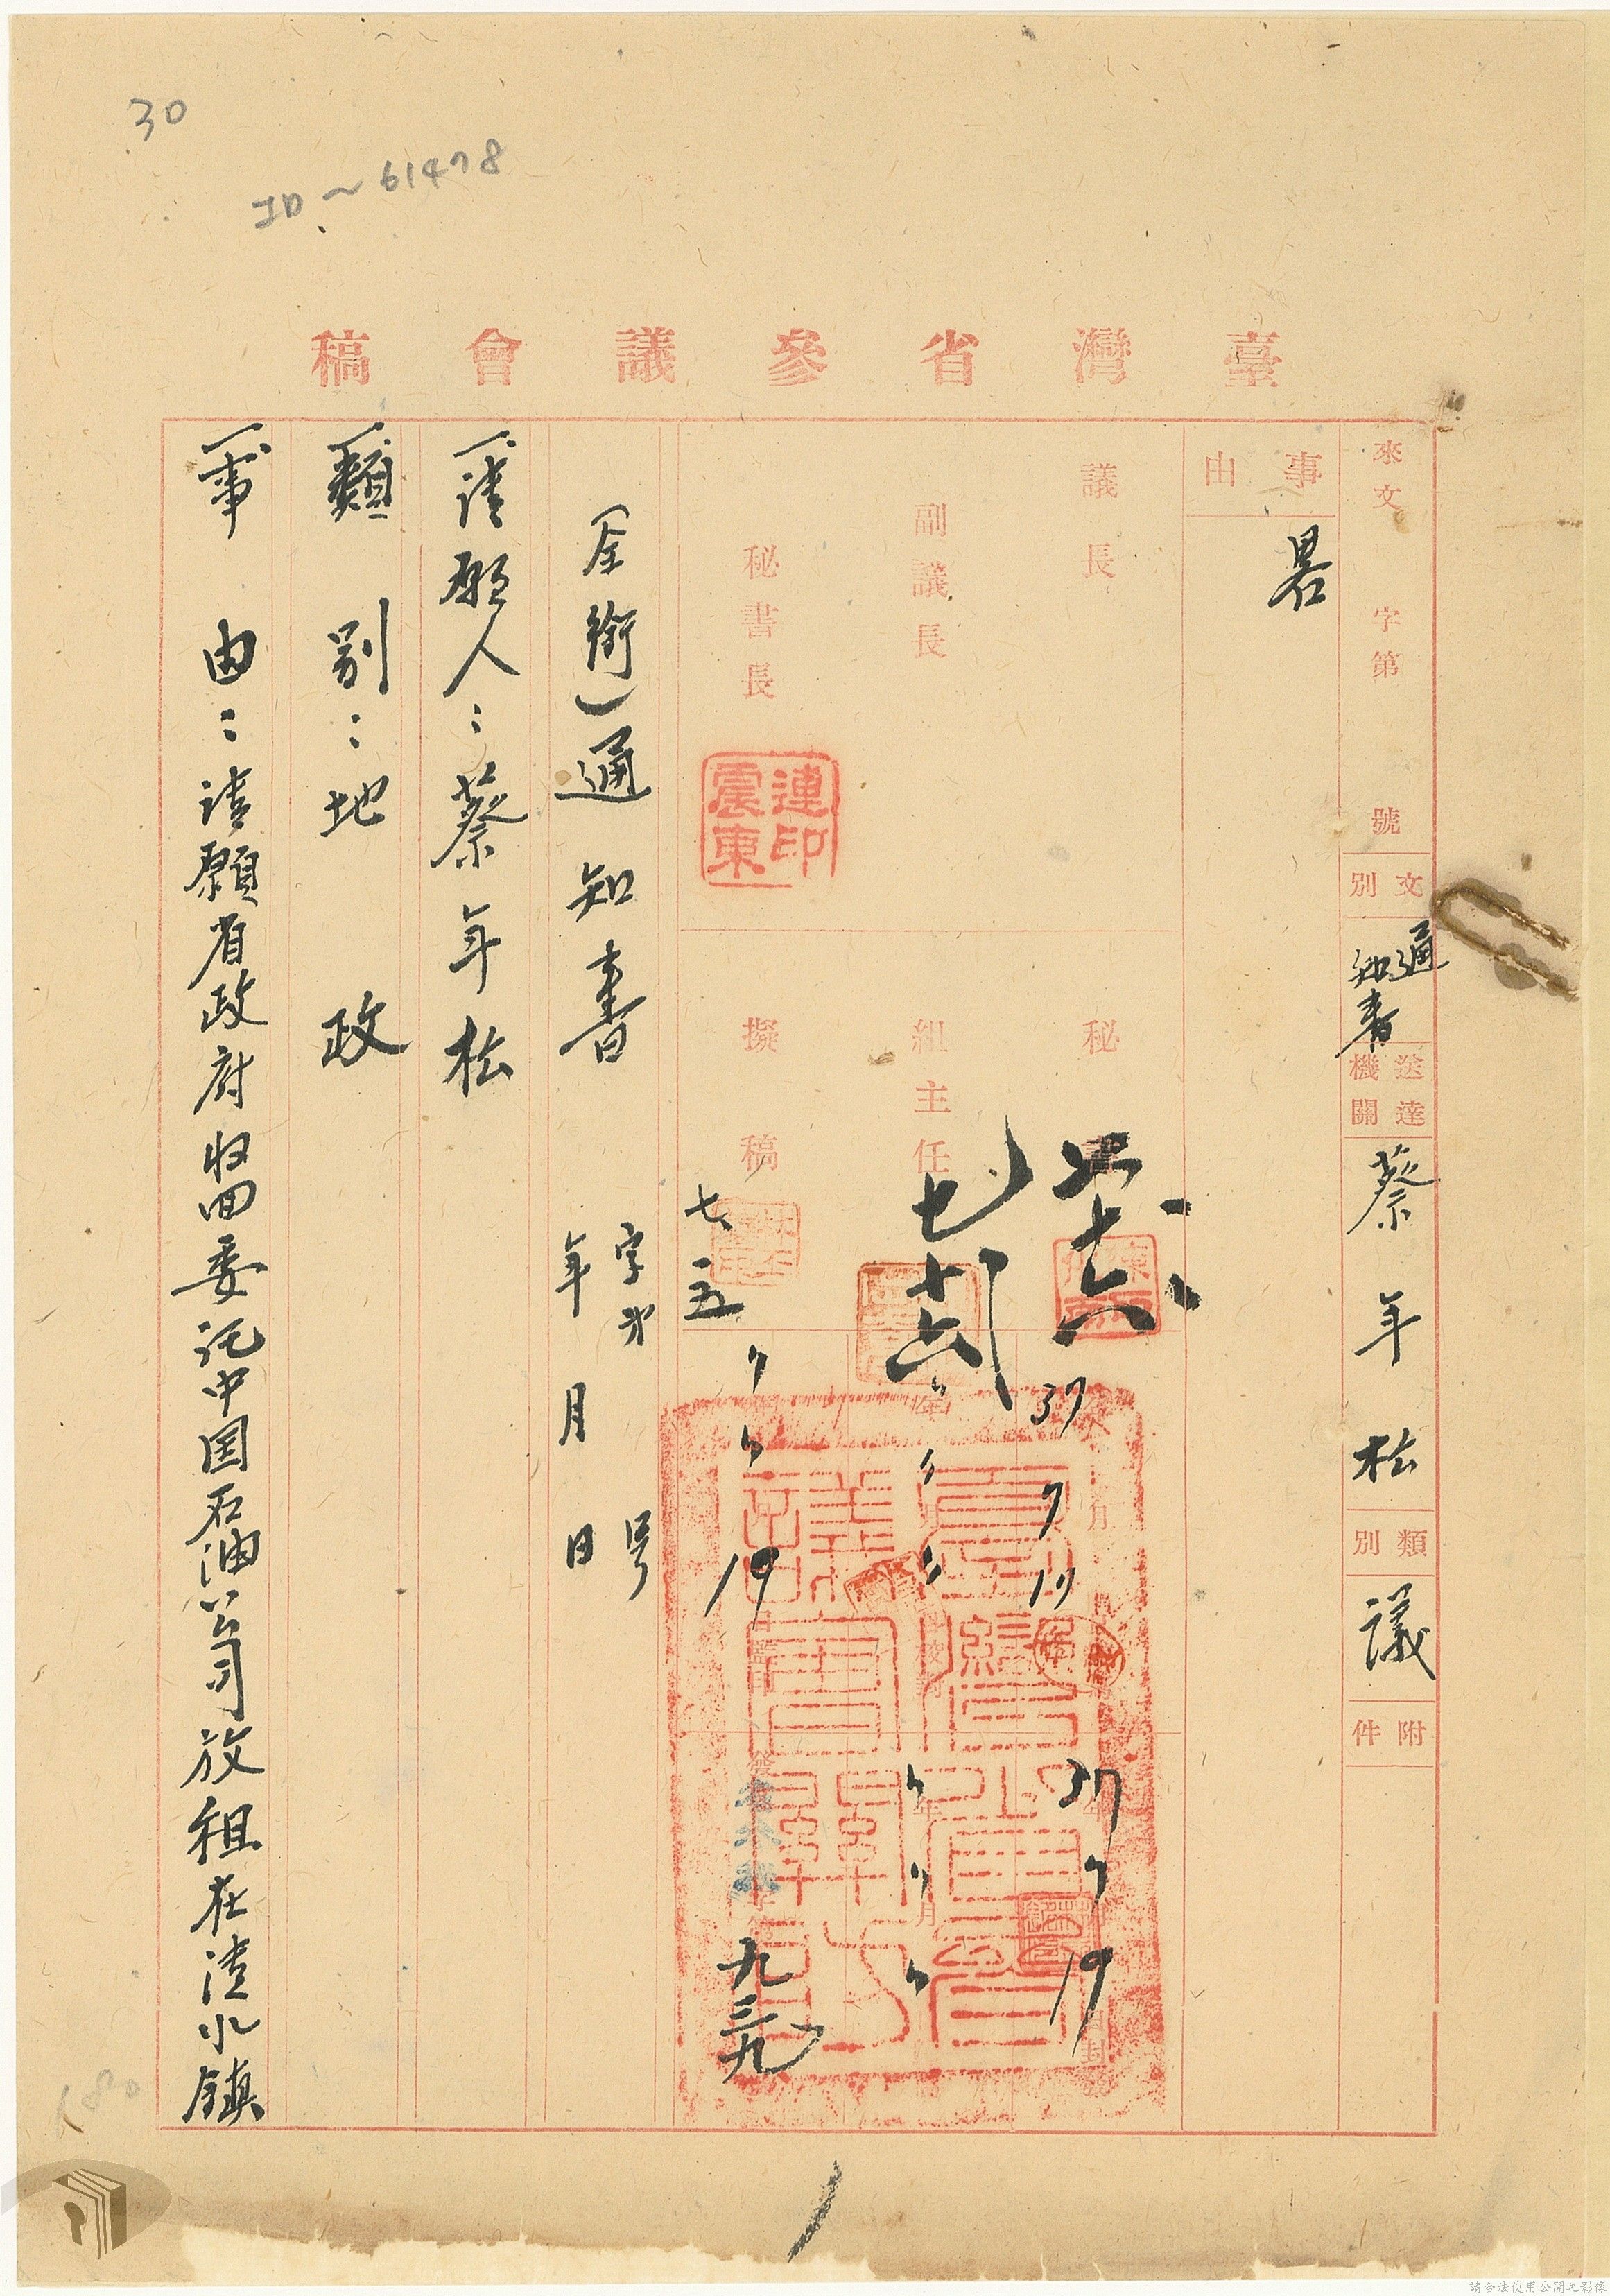 30
ID~61478
臺灣省參議會稿
來文 字第 號
文別 通知書
送達機關 蔡年松
類別 議
附件
事由 畧
議長
副議長
秘書長
連震東印
秘
組主任
擬稿
七、十六
七、十六
七、五
37 7 19
37 7 19
19
九三九
(全銜)通知書 字第 号
年 月 日
一、請願人:蔡年松
一、類別:地政
一、事由:請願省政府收回委託中国石油公司放租在清水鎮
請合法使用公開之影像